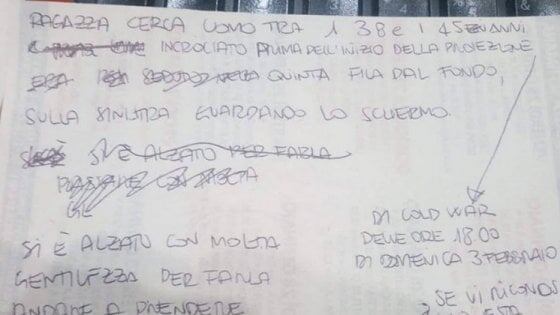 RAGAZZA CERCA UOMO TRA I 38 e I 45 ANNI
INCROCIATO PRIMA DELL'INIZIO DELLA PROIEZIONE
ERA SEDUTO NELLA QUINTA FILA DAL FONDO,
SULLA SINISTRA GUARDANDO LO SCHERMO.
SI È ALZATO PER FARLA
SI È ALZATO CON MOLTA
GENTILEZZA PER FARLA
ANDARE A PRENDERE
DI COLD WAR
DELLE ORE 18.00
DI DOMENICA 3 FEBBRAIO
SE VI RICONOS